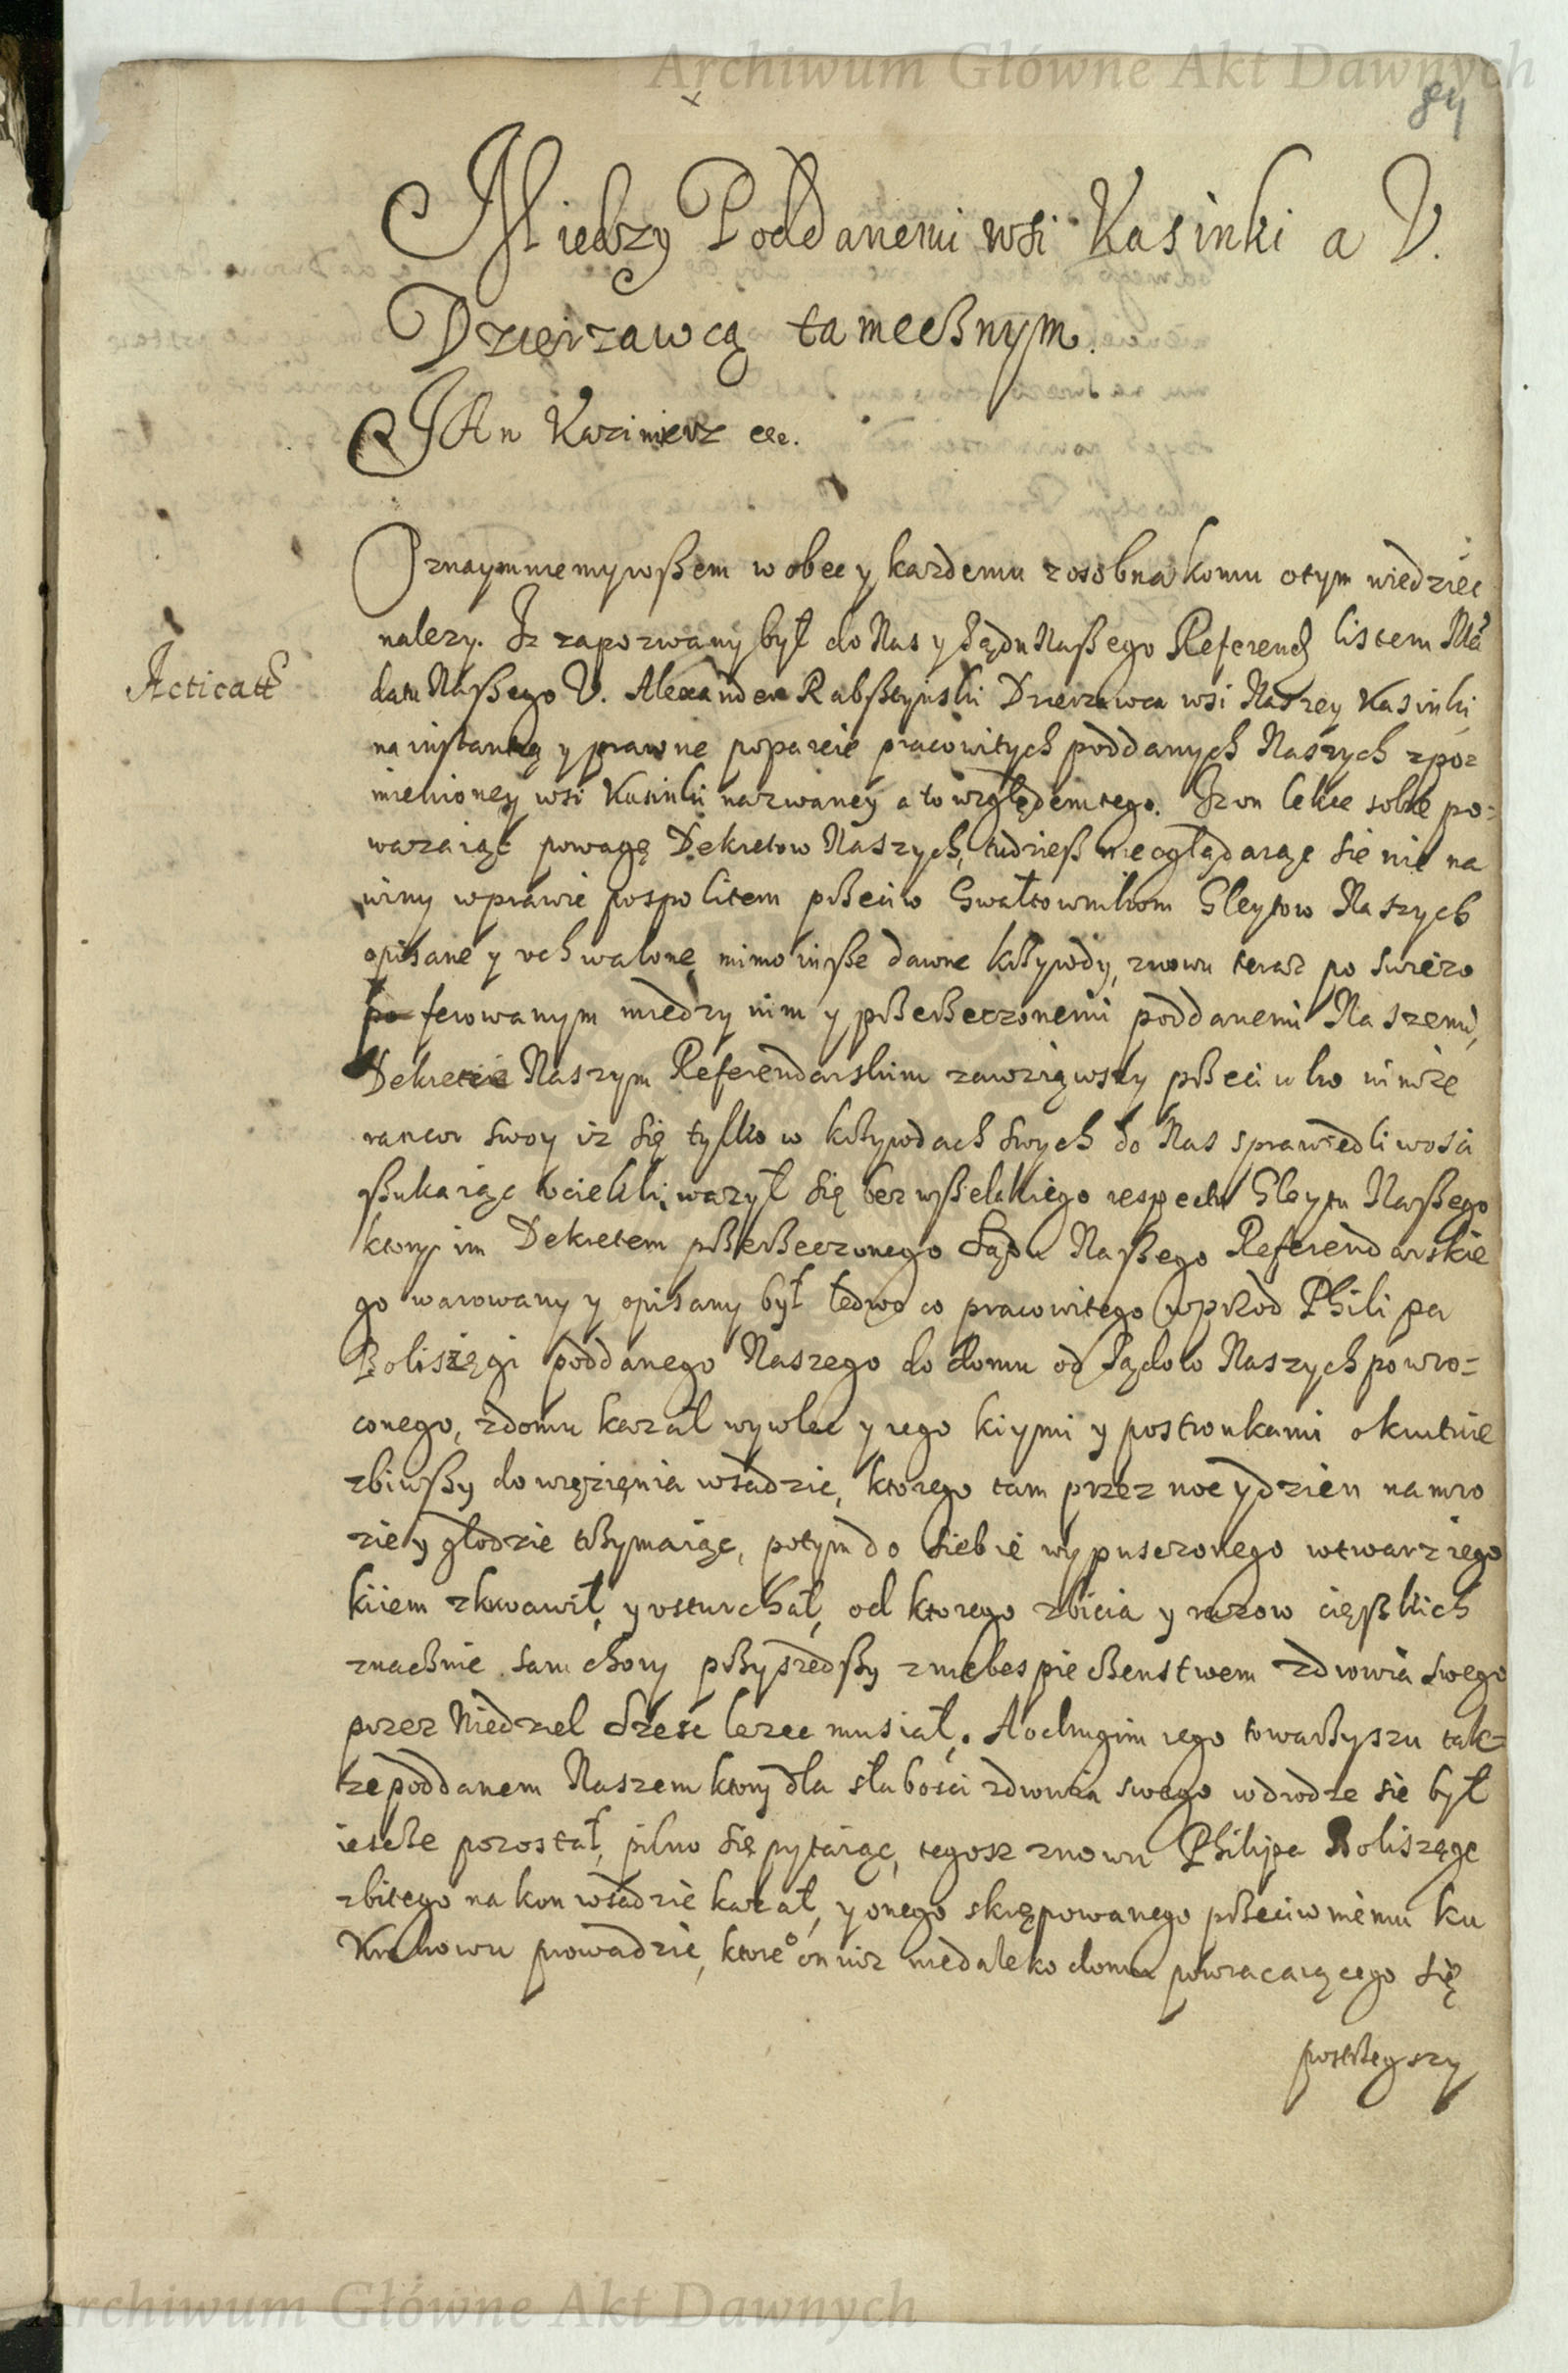 Archiwum Główne Akt Dawnych
84
Między Poddanemi wsi Kasinki a V.
Dzierzawcą tamecßnym.
JAn Kazimierz etc.
Oznaymuiemy wßem wobec y kazdemu zosobna komu otym wiedziec
nalezy. Iz zapozwany był do Nas y Sądu Naßego Referend listem Mã
Acticatt
datu Naßego V. Alexander Rabßtynski Dzierzawca wsi Naszey Kasinki
na instantią y prawne poparcie pracowitych poddanych Naszych zpo=
mienioney wsi Kasinki nazwaney a to względem tego. Iz on lekce sobie po=
wazaiąc powagę Dekretow Naszych, tudzieß nieoglądaiąc sie nie na
winy wprawie pospolitem pßeciw Gwałtownikom Gleytow Naszych
opisane y vchwalone mimo inße dawne kßywdy, znowu teraz po swiezo
ferowanym miedzy nim y pßerßeczonemi poddanemi Naszemi,
Dekrecie Naszym Referendarskim zawziąwszy pßeciwko nim ze
rancor swoy iz się tylko w kßywdach swych do Nas sprawiedliwosci
ßukaiąc vciekli, wazył się bez wßelakiego respectu Gleytu Naßego
ktory im Dekretem pßerßeczonego Sądu Naßego Referendarskie
go warowany y opisany był ledwo co pracowitego wpßod Philipa
Boliszęgi poddanego Naszego do domu od Sądow Naszych powro=
conego, zdomu kazał wywlec y iego kiymi y postronkami okrutnie
zbiwßy do więzięnia wsadzic, ktorego tam przez noc y dzien na mro
zie y głodzie tßymaiąc, potym do siebie wypusczonego wtwarz iego
kiiem zkrwawił, y vsturchał, od ktorego zbicia y razow cięßkich
znacßnie sam chory pßyszedßy zniebespiecßenstwem zdrowia swego
przez Niedziel szesc lezec musiał. A o drugim iego towarßyszu tak=
ze poddanem Naszem ktory dla słabosci zdrowia swego wdrodze sie był
iescße pozostał, pilno się pytaiąc, tegosz znowu Philipa Boliszęgę
zbitego na kon wsadzic kazał, y onego skrępowanego pßeciw niemu ku
Krakowu prowadzic, ktore° on iuz niedaleko domu powracaiącego się
postßegszy
Archiwum Główne Akt Dawnych